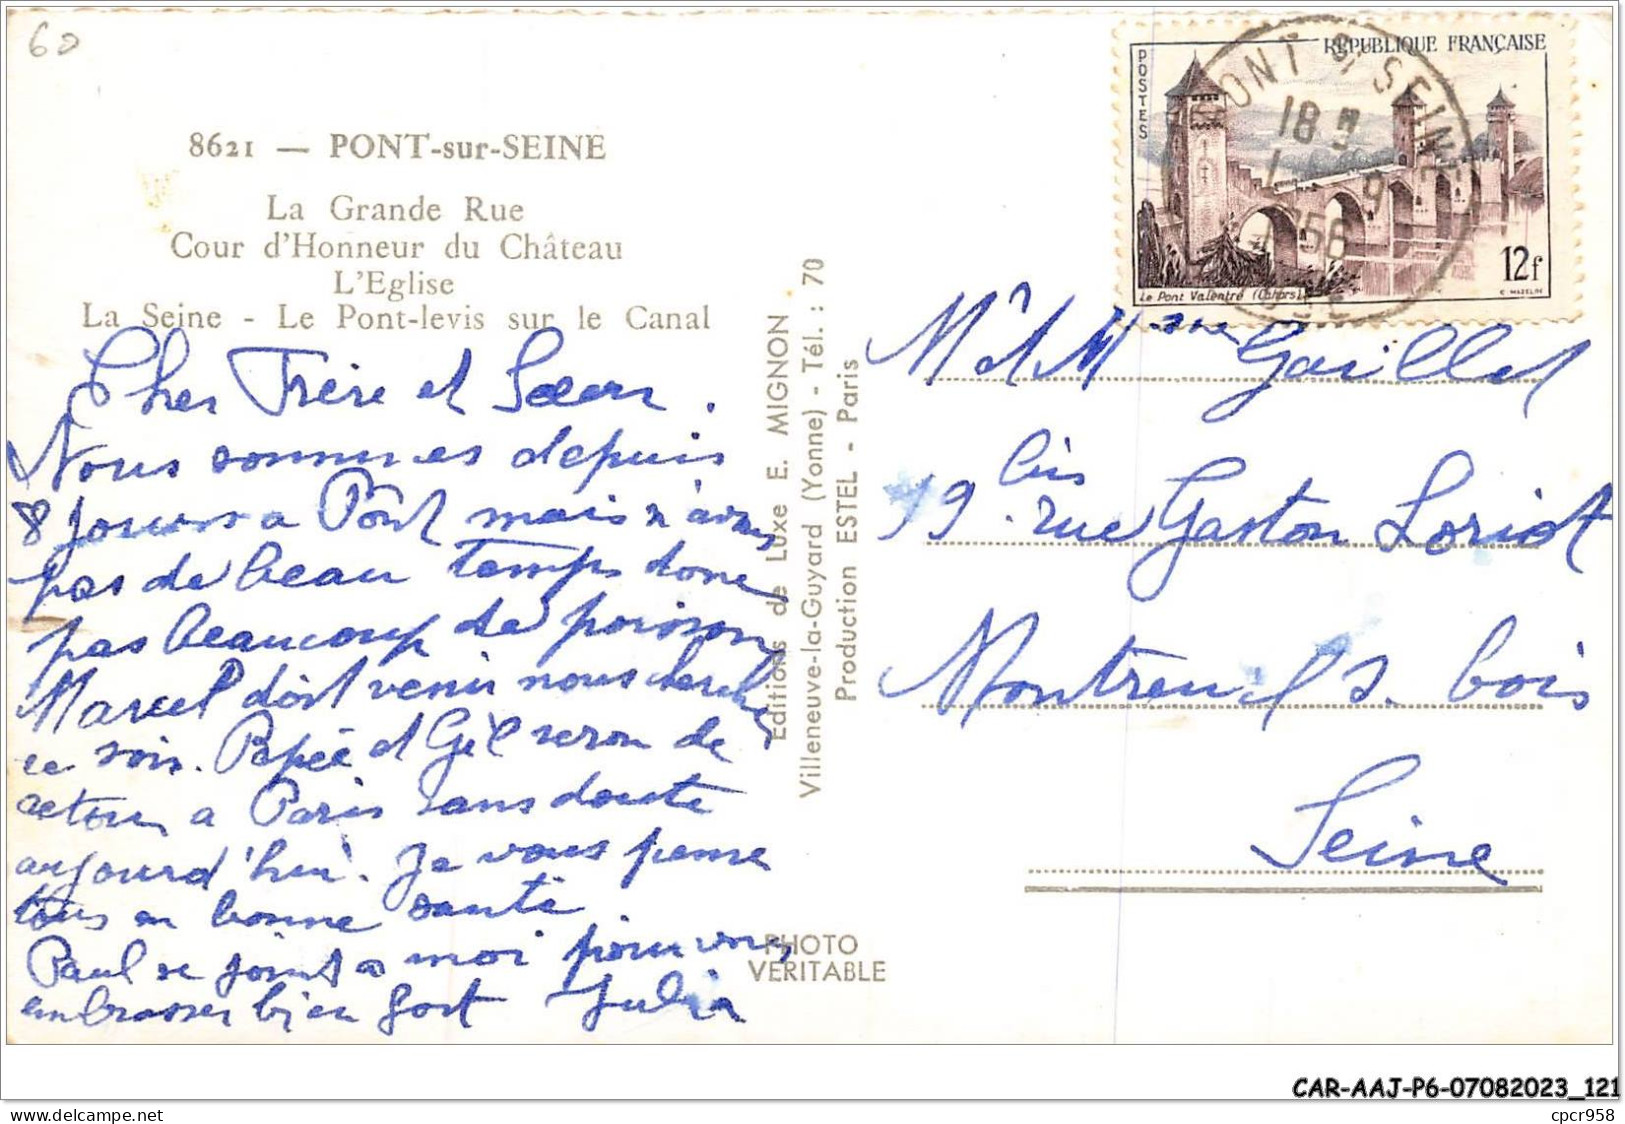 60
8621 — PONT-sur-SEINE
La Grande Rue
Cour d'Honneur du Château
L'Eglise
La Seine - Le Pont-levis sur le Canal
Cher Frère et Sœur.
Nous sommes depuis
8 jours a Pont mais n'avons
pas de beau temps donc
pas beaucoup de poisson
Marcel doit venir nous chercher
ce soir. Pépée et Gil seron de
retour a Paris sans doute
aujourd'hui. Je vous pense
tous en bonne santé
Paul se joint a moi pour vous
embrasser bien fort Julia
Editions de Luxe E. MIGNON
Villeneuve-la-Guyard (Yonne) - Tél. : 70
Production ESTEL - Paris
PHOTO
VERITABLE
POSTES
RÉPUBLIQUE FRANÇAISE
Le Pont Valentré (Cahors)
12f
C. MAZELIN
PONT S/ SEINE
18 H
9
1956
AUBE
M. et Mme Gaillet
19 bis rue Gaston Loriot
Montreuil s. bois
Seine
CAR-AAJ-P6-07082023_121
cpcr958